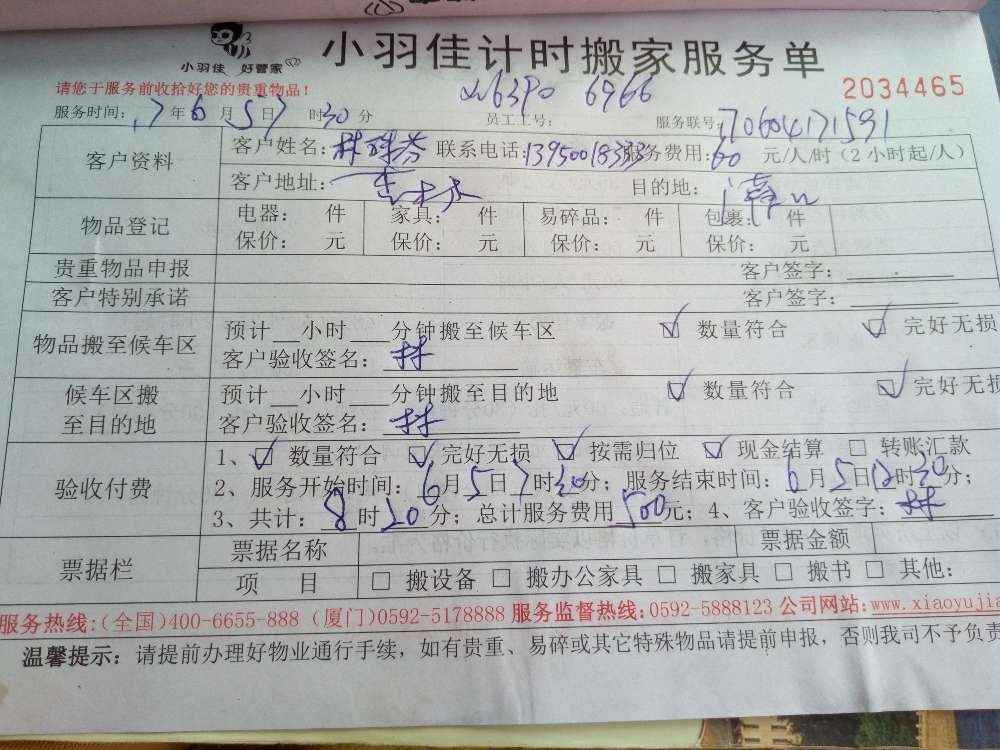 小羽佳 好管家
小羽佳计时搬家服务单
请您于服务前收拾好您的贵重物品！
2034465
6390 6966
服务时间：17年6月5日7时30分 员工工号： 服务联号：170604171591
客户资料 客户姓名： 联系电话：13950018333 服务费用：60元/人/时（2小时起/人）
客户地址： 目的地：
物品登记 电器： 件 家具： 件 易碎品： 件 包裹： 件
保价： 元 保价： 元 保价： 元 保价： 元
贵重物品申报 客户签字：
客户特别承诺 客户签字：
物品搬至候车区 预计__小时___分钟搬至候车区 ☑ 数量符合 ☑ 完好无损
客户验收签名：林
候车区搬至目的地 预计__小时___分钟搬至目的地 ☑ 数量符合 ☑ 完好无损
客户验收签名：林
验收付费 1、☑ 数量符合 ☑ 完好无损 ☑ 按需归位 ☑ 现金结算 □ 转账汇款
2、服务开始时间：6月5日7时30分；服务结束时间：6月5日12时30分；
3、共计：8时20分；总计服务费用500元；4、客户验收签字：林
票据栏 票据名称 票据金额
项 目 □ 搬设备 □ 搬办公家具 □ 搬家具 □ 搬书 □ 其他：
服务热线：(全国)400-6655-888 (厦门)0592-5178888 服务监督热线：0592-5888123 公司网站：www.xiaoyujia
温馨提示：请提前办理好物业通行手续，如有贵重、易碎或其它特殊物品请提前申报，否则我司不予负责